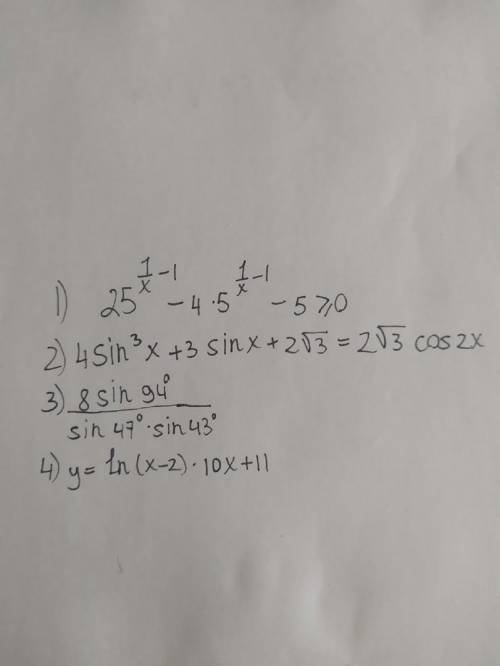 1) 25^(1/x - 1) - 4 · 5^(1/x - 1) - 5 ⩾ 0
2) 4 sin³x + 3 sin x + 2√3 = 2√3 cos2x
3) 8 sin 94° / sin 47° · sin 43°
4) y = ln(x-2) · 10x + 11